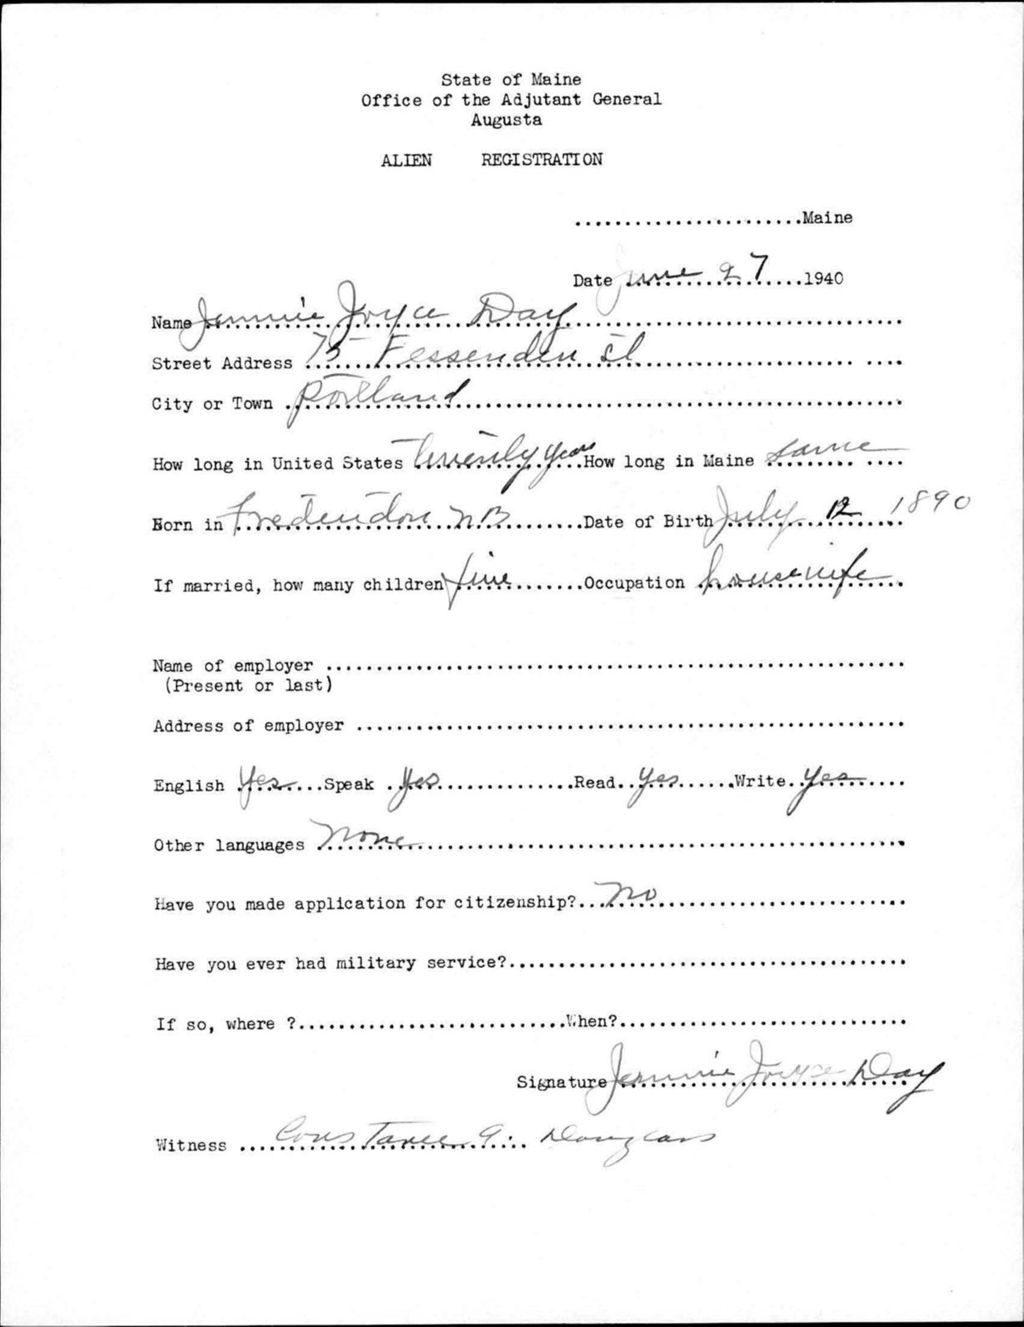 State of Maine
Office of the Adjutant General
Augusta
ALIEN REGISTRATION
.......................Maine
Date June 27 .....1940
Name Jennie Joyce Day
Street Address 75 Fessenden St
City or Town Portland
How long in United States twenty years How long in Maine same
Born in Fredericton N B Date of Birth July 12 1890
If married, how many children five Occupation housewife
Name of employer
(Present or last)
Address of employer
English Yes Speak Yes Read Yes Write Yes
Other languages None
Have you made application for citizenship? No
Have you ever had military service?
If so, where ? When?
Signature Jennie Joyce Day
Witness Constance G. Douglass